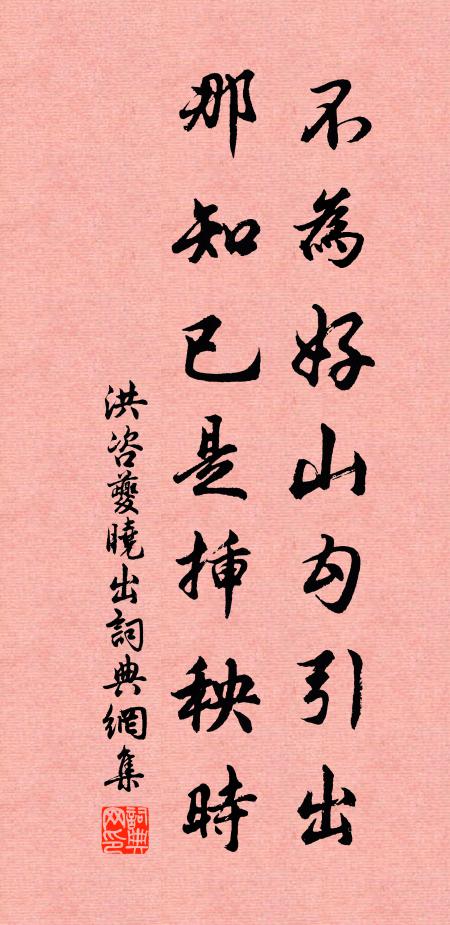 不為好山勾引出
那知已是插秧時
洪咨夔曉出詞典網集
詞典网印